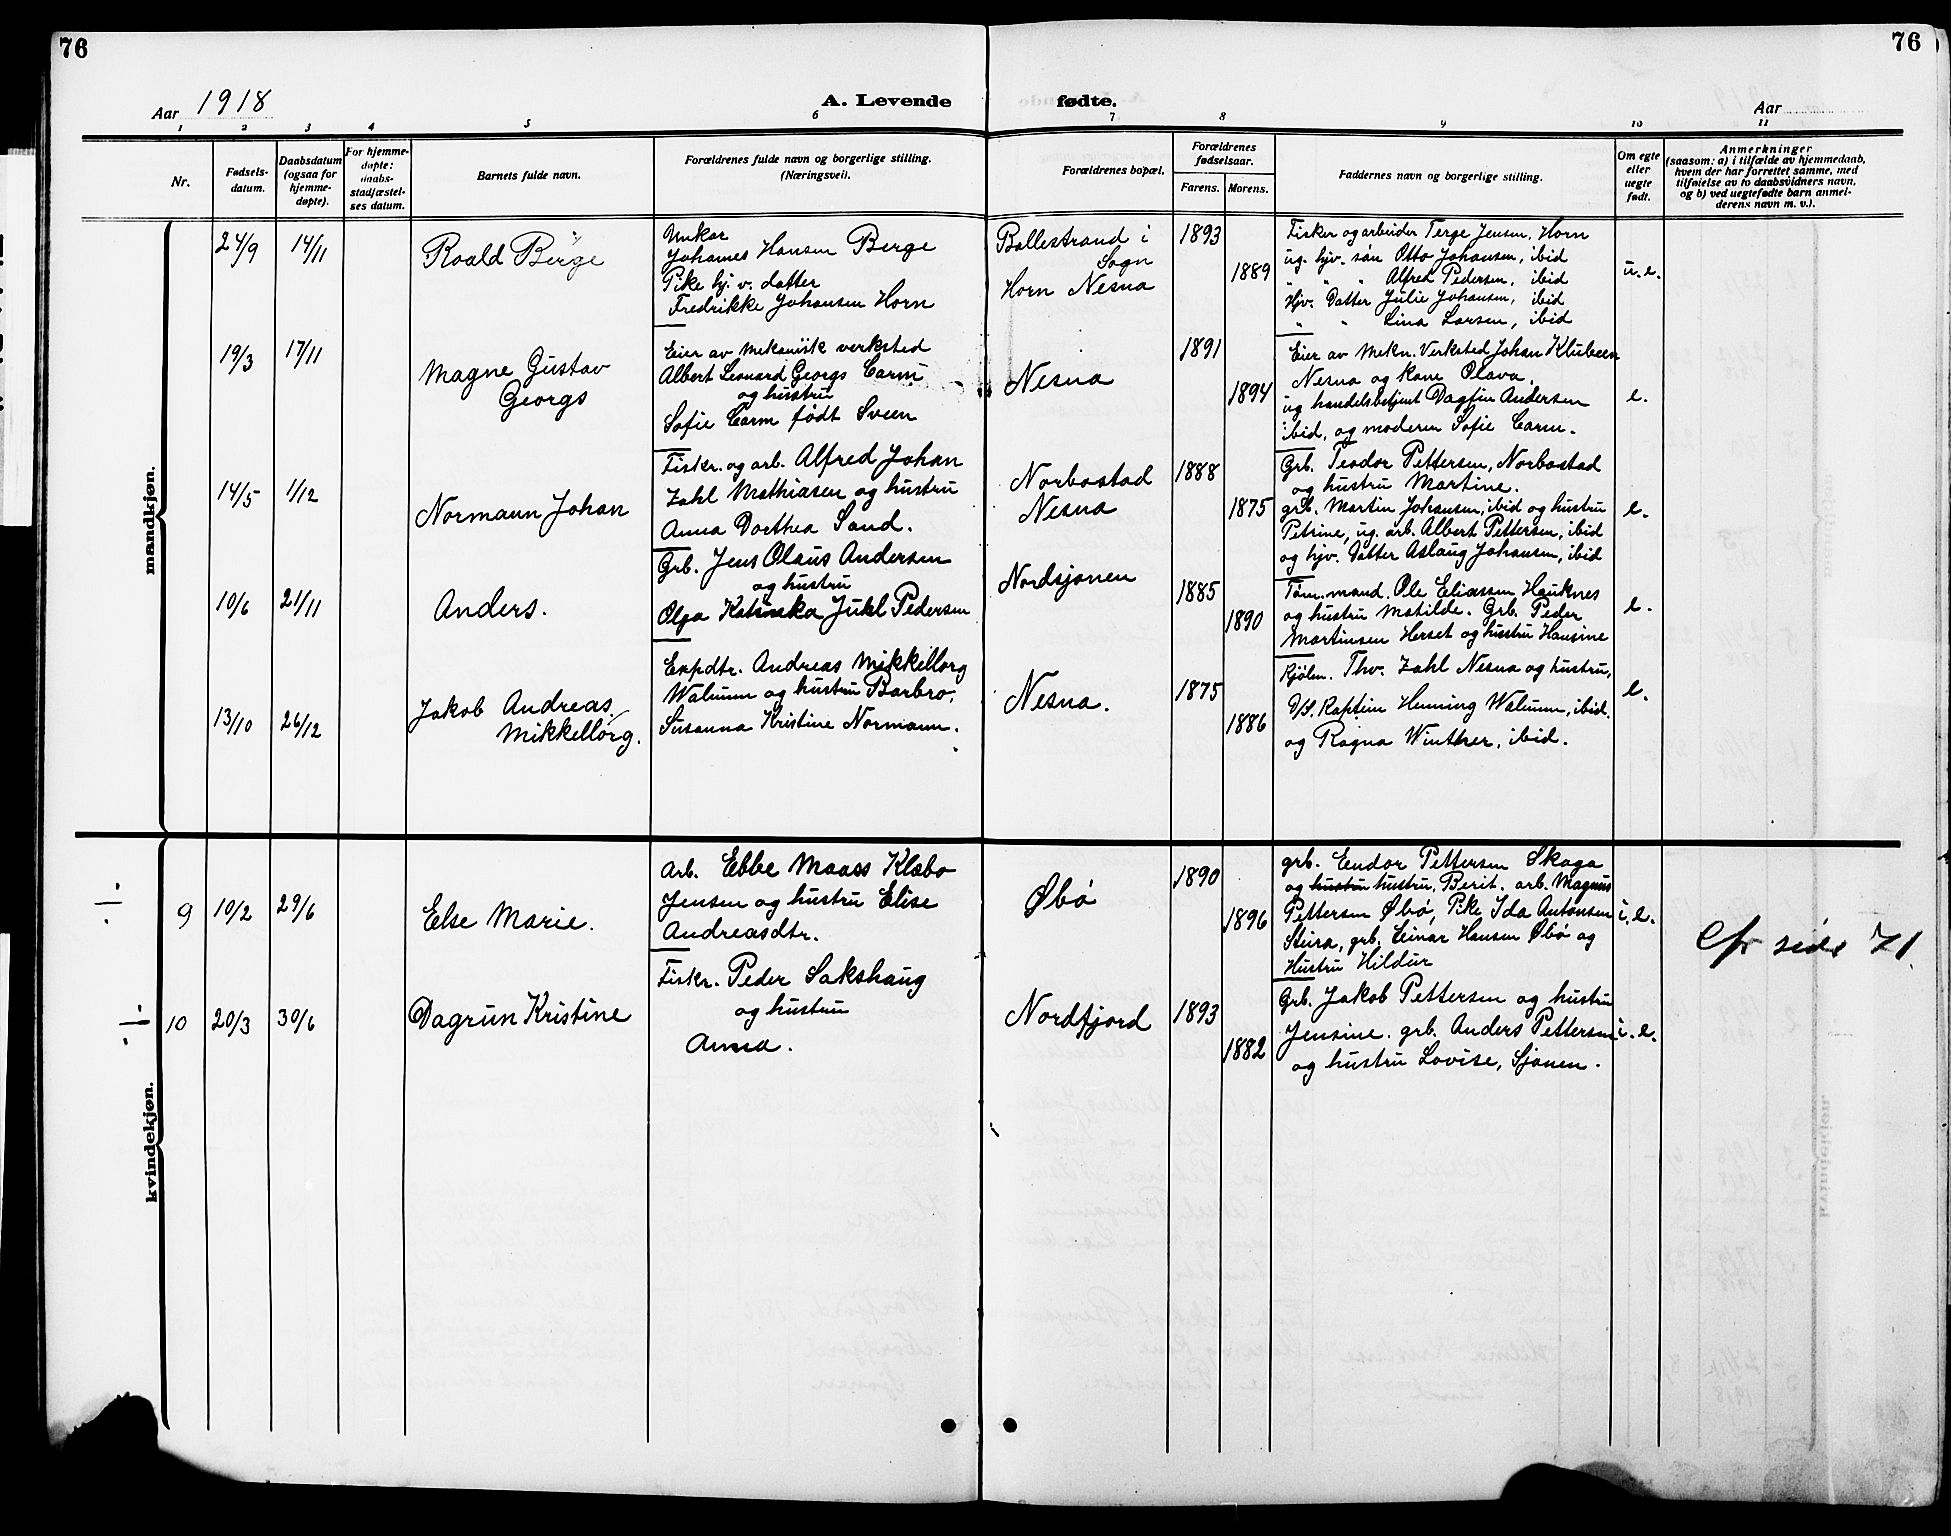 76
76
Aar 1918
A. Levende
fødte.
Aar
1 2 3 4 5 6 7 8 9 10 11
Nr.
Fødsels-
datum.
Daabsdatum
(ogsaa for
hjemme-
døpte).
For hjemme-
døpte:
daabs-
stadfæstel-
ses datum.
Barnets fulde navn.
Forældrenes fulde navn og borgerlige stilling.
(Næringsvei.)
Forældrenes bopæl.
Forældrenes
fødselsaar.
Farens. Morens.
Faddernes navn og borgerlige stilling.
Om egte
eller
uegte
født.
Anmerkninger
(saasom: a) i tilfælde av hjemmedaab,
hvem der har forrettet samme, med
tilføielse av to daabsvidners navn,
og b) ved uegtefødte barn anmel-
derens navn m. v.).
mandkjøn.
24/9 14/11
Roald Berge
Unkar
Johannes Hansen Berge
Pike hj. v. datter
Fredrikke Johansen Horn
Ballestrand i
Sogn
Horn Nesna
1893
1889
Fisker og arbeider Terge Jensen, Horn
ug. hjv. søn Otto Johansen, ibid
" " " Alfred Pedersen, ibid
Hjv. Datter Julie Johansen, ibid
" " Lina Larsen, ibid
u. e.
19/3 17/11
Magne Gustav
Georgs
Eier av mekanisk verksted
Albert Leonard Georgs Carm
og hustru
Sofie Carm født Sveen
Nesna
1891
1894
Eier av Mekn. Verksted Johan Klubeen
Nesna og kone Olava.
ug handelsbetjent Dagfin Andersen
ibid, og moderen Sofie Carm.
e.
14/5 1/12
Normann Johan
Fiskr. og arb. Alfred Johan
Zahl Mathiasen og hustru
Anna Dorthea Sand.
Norbostad
Nesna
1888
1875
Grb. Teodor Pettersen, Norbostad
og hustru Martine.
grb. Martin Johansen, ibid og hustru
Petrine, ug. arb. Albert Pettersen, ibid
og hjv. Datter Aslaug Johansen, ibid
e.
10/6 21/11
Anders.
Grb. Jens Olaus Andersen
og hustru
Olga Katinka Jukl Pedersen
Nordsjonen
1885
1890
Tøm. mand. Ole Eliassen Hauknes
og hustru Matilde. Grb. Peder
Martinsen Herset og hustru Hansine
e.
13/10 26/12
Jakob Andreas
Mikkelborg.
Expdtr. Andreas Mikkelborg
Walnum og hustru Barbro,
Susanna Kristine Normann.
Nesna.
1875
1886
Kjølm. Thv. Zahl Nesna og hustru,
D/S. Kaptein Henning Walnum, ibid.
og Ragna Winther, ibid.
e.
kvindekjøn.
9 10/2 29/6
Else Marie.
Arb. Ebbe Maass Klæbo
Jensen og hustru Elise
Andreasdtr.
Øbø
1890
1896
grb. Endor Pettersen Skaga
og hustru hustru, Berit. arb. Magnus
Pettersen Øbø, Pike Ida Antonsen
Stura, grb. Einar Hansen Øbø og
Hustru Hildur
i. e.
Cfr side 71.
10 20/3 30/6
Dagrun Kristine
Fiskr. Peder Sakshaug
og hustru
Anna.
Nordfjord
1893
1882
Grb. Jakob Pettersen og hustru
Jensine. grb. Anders Pettersen
og hustru Lovise, Sjonen.
i. e.